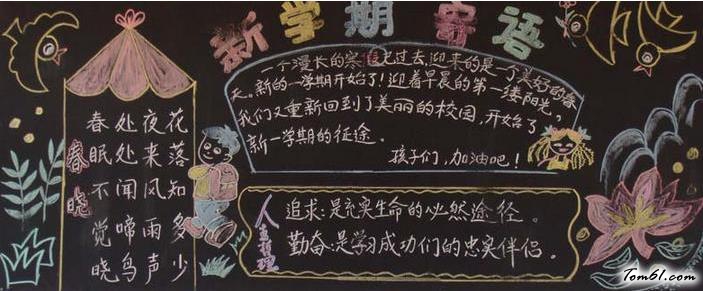 新学期寄语
春晓
春眠不觉晓
处处闻啼鸟
夜来风雨声
花落知多少
一个漫长的寒假已过去,迎来的是一个美好的春
天。新的一学期开始了!迎着早晨的第一缕阳光,
我们又重新回到了美丽的校园,开始了
新一学期的征途.
孩子们,加油吧!
人生真理
追求:是充实生命的必然途径。
勤奋:是学习成功们的忠实伴侣。
Tom61.com